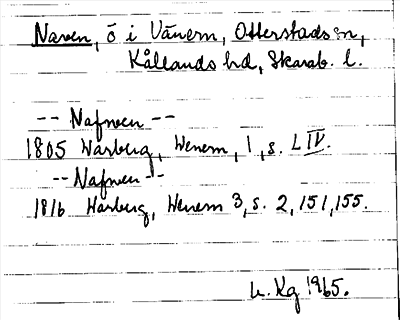 Naven, ö i Vänern, Otterstads sn,
Kållands hd, Skarab. l.
-- Nafwen --
1805 Warberg, Wenern, 1, s. LIV.
-- Nafwen --
1816 Warberg, Wenern 3, s. 2, 151, 155.
h. Kg 1965.